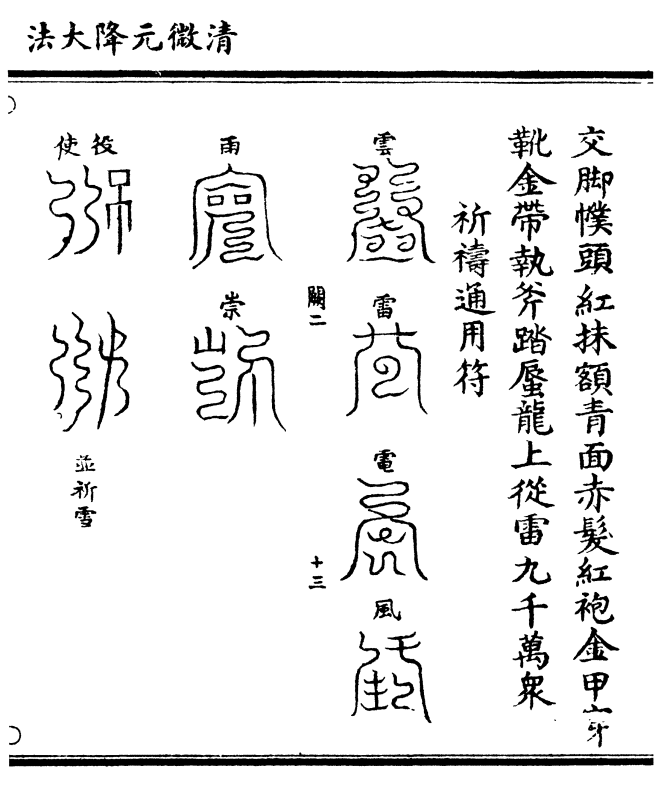 清微元降大法
交脚幞頭紅抹額青面赤髮紅袍金甲穿
靴金帶執斧踏蜃龍上從雷九千萬衆
祈禱通用符
雲
雷
電
風
闕二
十三
雨
祟
役使
並祈雪